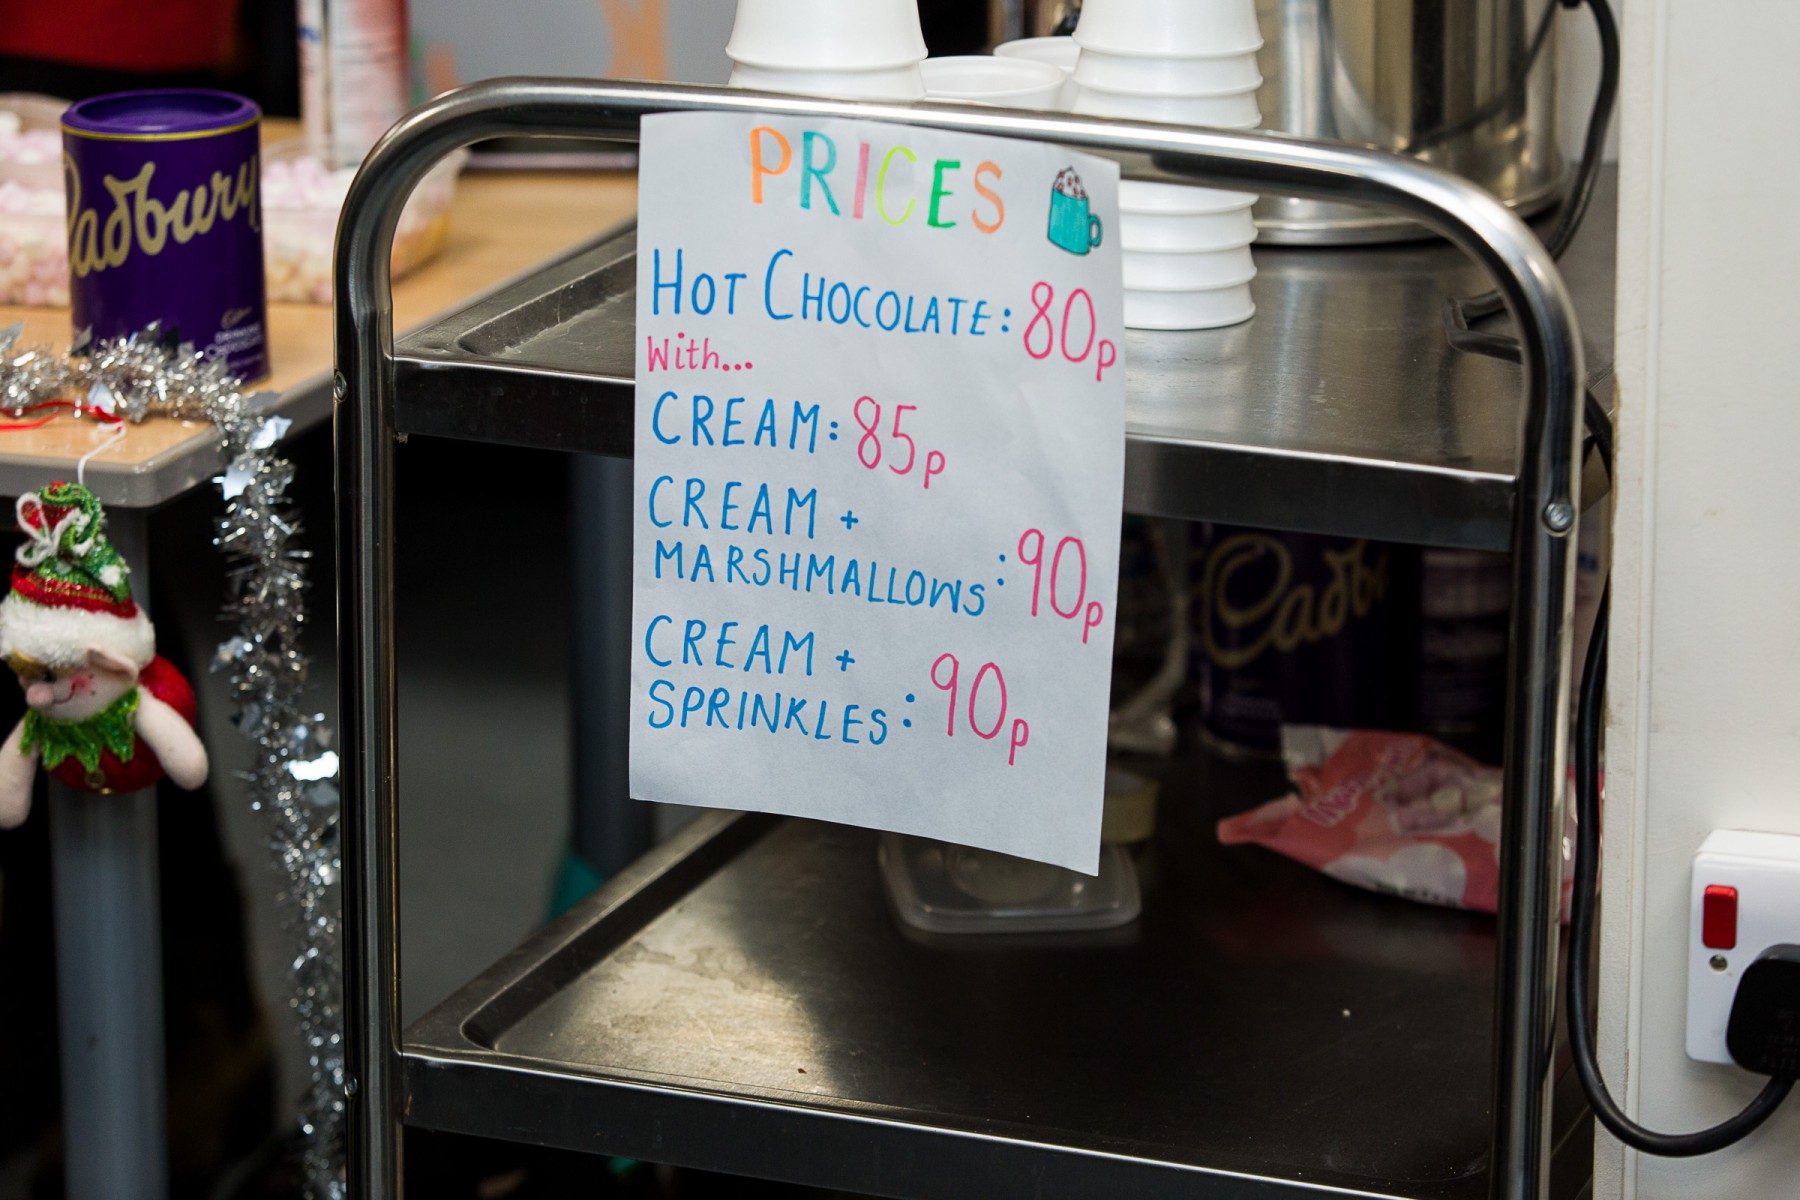 PRICES
HOT CHOCOLATE: 80p
With...
CREAM: 85p
CREAM +
MARSHMALLOWS: 90p
CREAM +
SPRINKLES: 90p
Cadbury
Cadbury